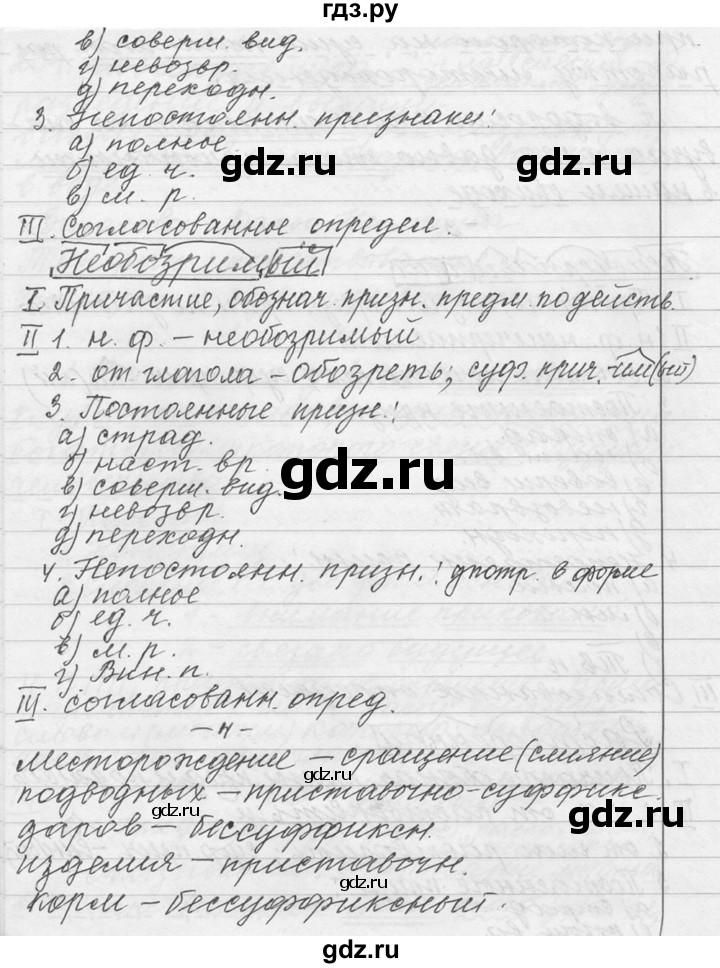 гдз.ру
в) соверш. вид.
г) невозвр.
д) переходн.
3. Непостоянн. признаки:
а) полное
б) ед. ч.
в) м. р.
gdz.ru
gdz.ru
III. Согласованное определ.
Необозримый
I. Причастие, обознач. призн. предм. по действ.
II 1. н. ф. – необозримый
2. от глагола – обозреть; суф. прич. -им(ый)
3. Постоянные призн.:
а) страд.
б) наст. вр.
в) соверш. вид.
г) невозвр.
д) переходн.
gdz.ru
4. Непостоянн. призн.: употр. в форме
а) полное
б) ед. ч.
в) м. р.
г) Вин. п.
III. согласованн. опред.
– ч –
месторождение – сращение (слияние)
подводных – приставочно-суффикс.
даров – бессуффиксн.
изделия – приставочн.
корм – бессуффиксный.
gdz.ru
gdz.ru
gdz.ru
gdz.ru
gdz.ru